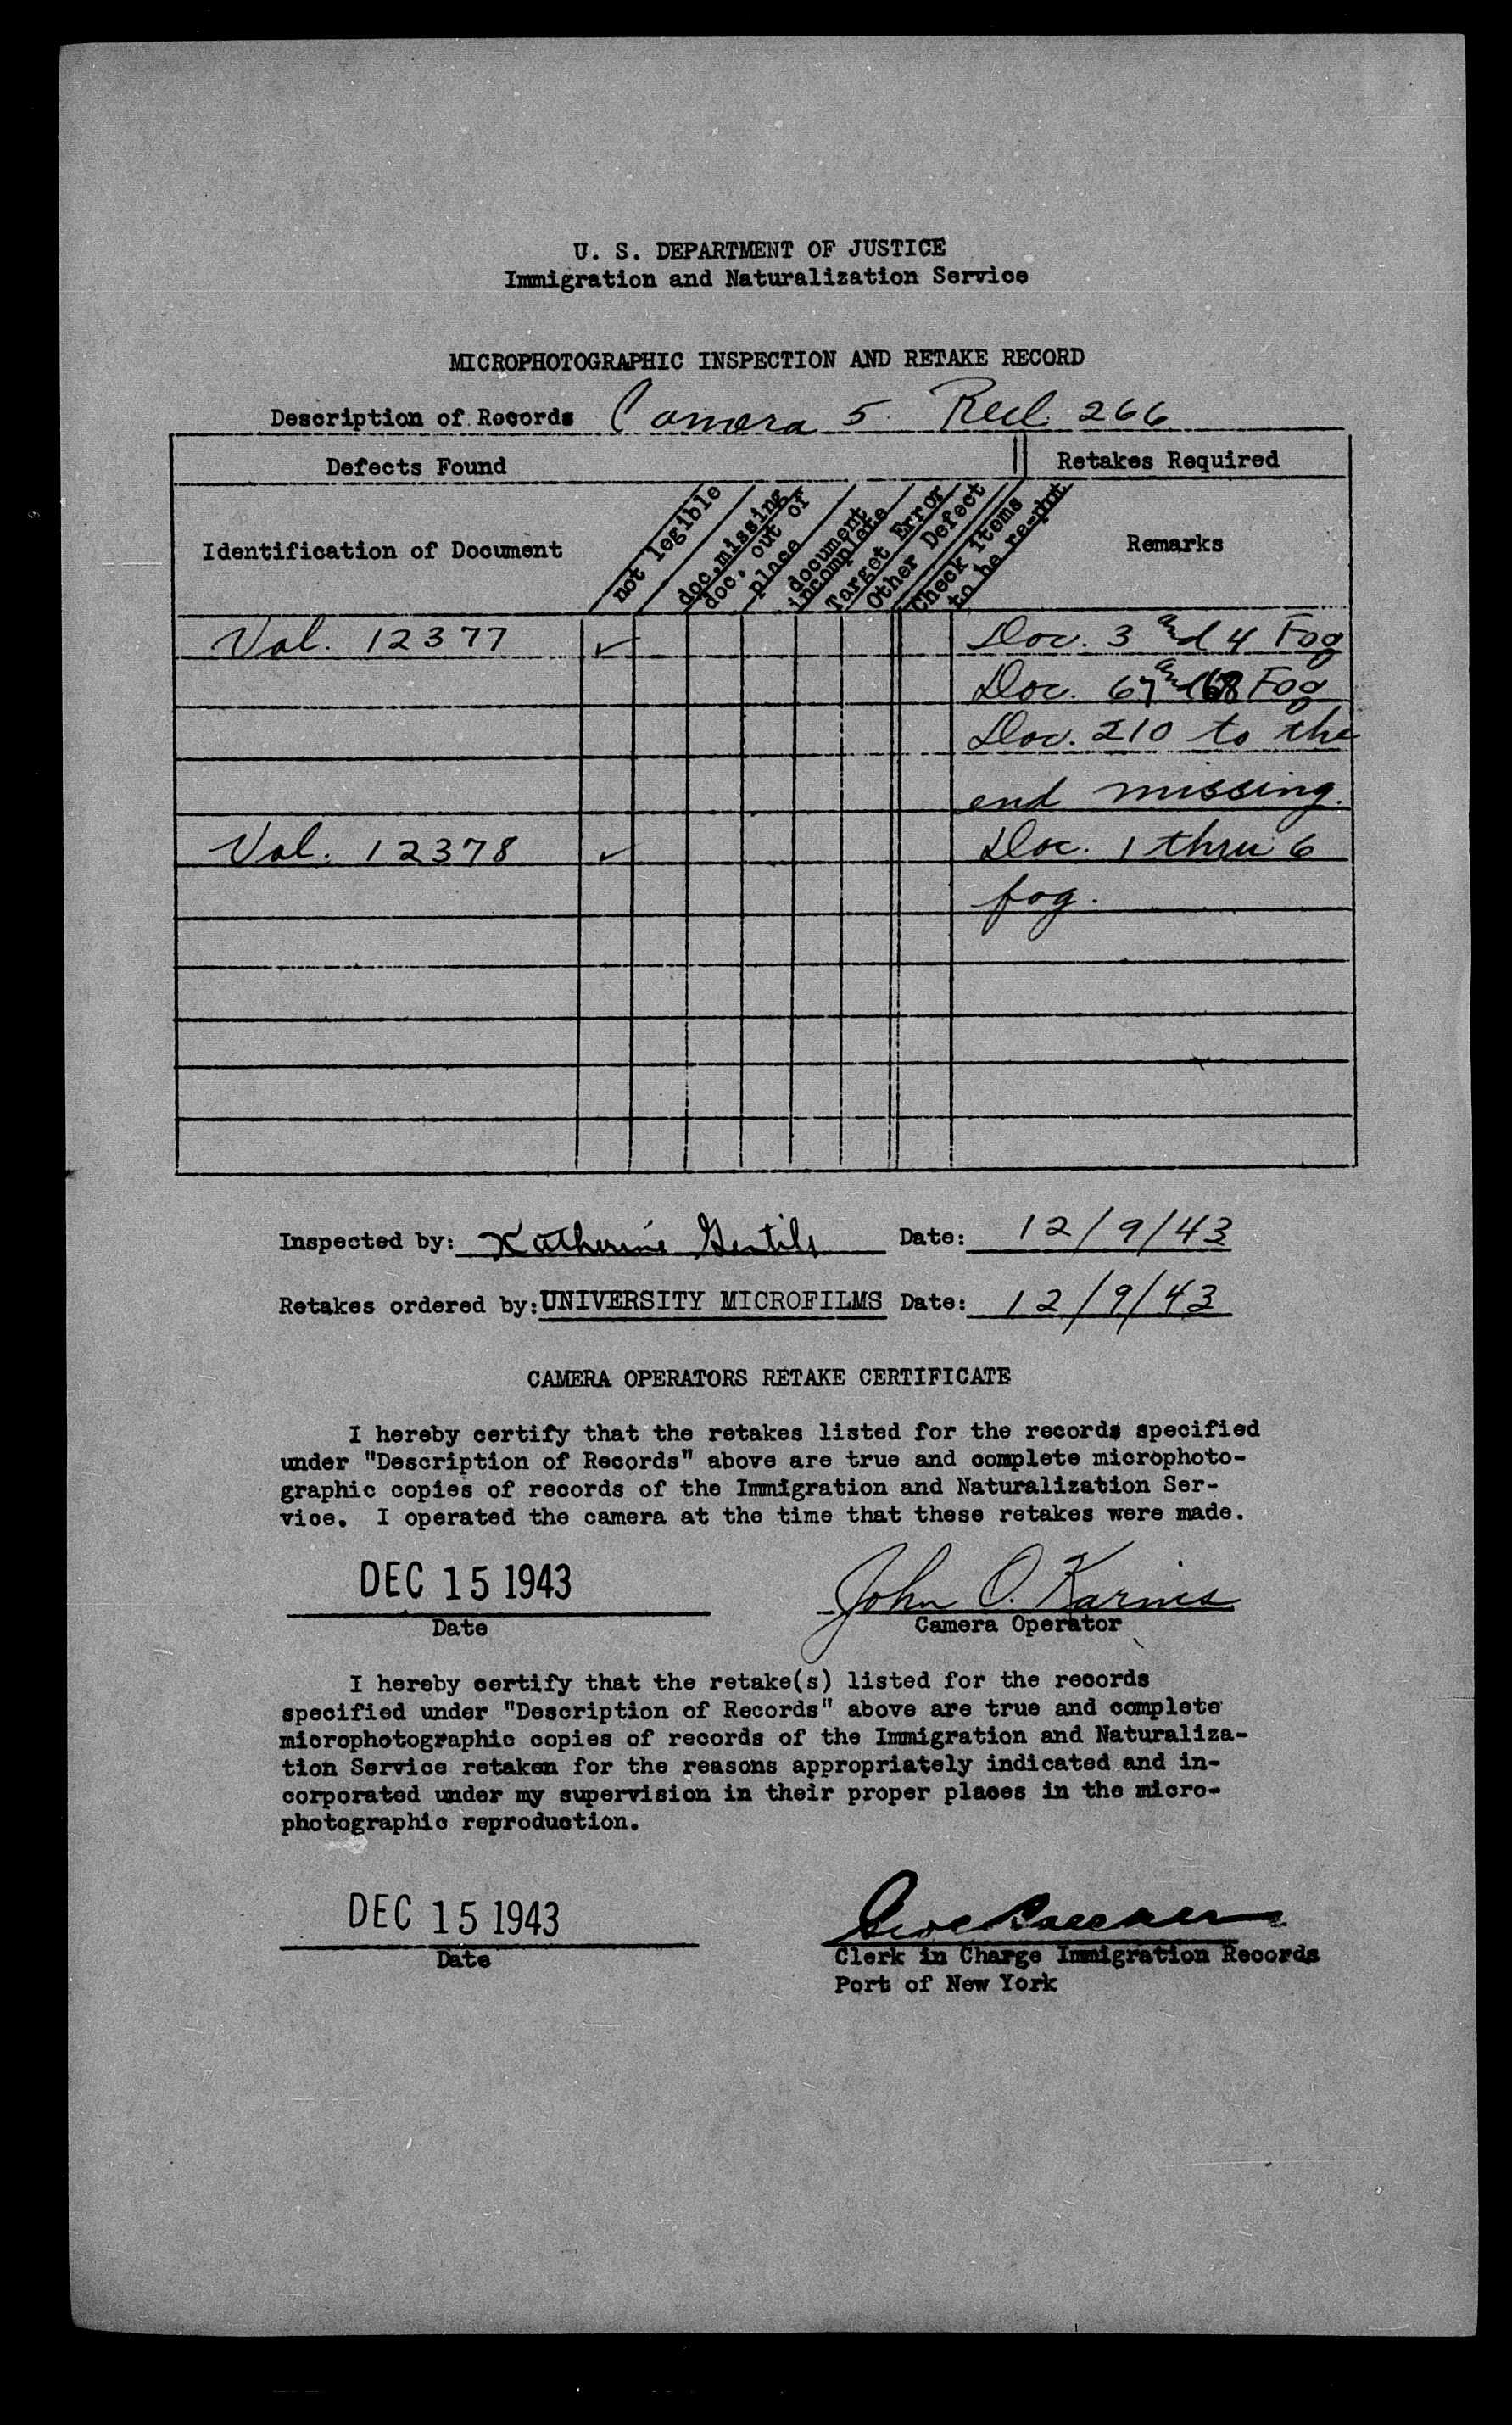 U. S. DEPARTMENT OF JUSTICE
Immigration and Naturalization Service
MICROPHOTOGRAPHIC INSPECTION AND RETAKE RECORD
Description of Records Camera 5 Reel 266
Defects Found
Retakes Required
Identification of Document
not legible
doc. missing
doc. out of
place
document
incomplete
Target Error
Other Defect
Check items
to be re-phot
Remarks
Vol. 12377 ✓ Doc. 3 and 4 Fog
Doc. 67 and 68 Fog
Doc. 210 to the
end missing.
Vol. 12378 ✓ Doc. 1 thru 6
fog.
Inspected by: Katherine Gentile Date: 12/9/43
Retakes ordered by: UNIVERSITY MICROFILMS Date: 12/9/43
CAMERA OPERATORS RETAKE CERTIFICATE
I hereby certify that the retakes listed for the records specified
under "Description of Records" above are true and complete microphoto-
graphic copies of records of the Immigration and Naturalization Ser-
vice. I operated the camera at the time that these retakes were made.
DEC 15 1943 John O. Karnes
Date Camera Operator
I hereby certify that the retake(s) listed for the records
specified under "Description of Records" above are true and complete
microphotographic copies of records of the Immigration and Naturaliza-
tion Service retaken for the reasons appropriately indicated and in-
corporated under my supervision in their proper places in the micro-
photographic reproduction.
DEC 15 1943
Date
Clerk in Charge Immigration Records
Port of New York